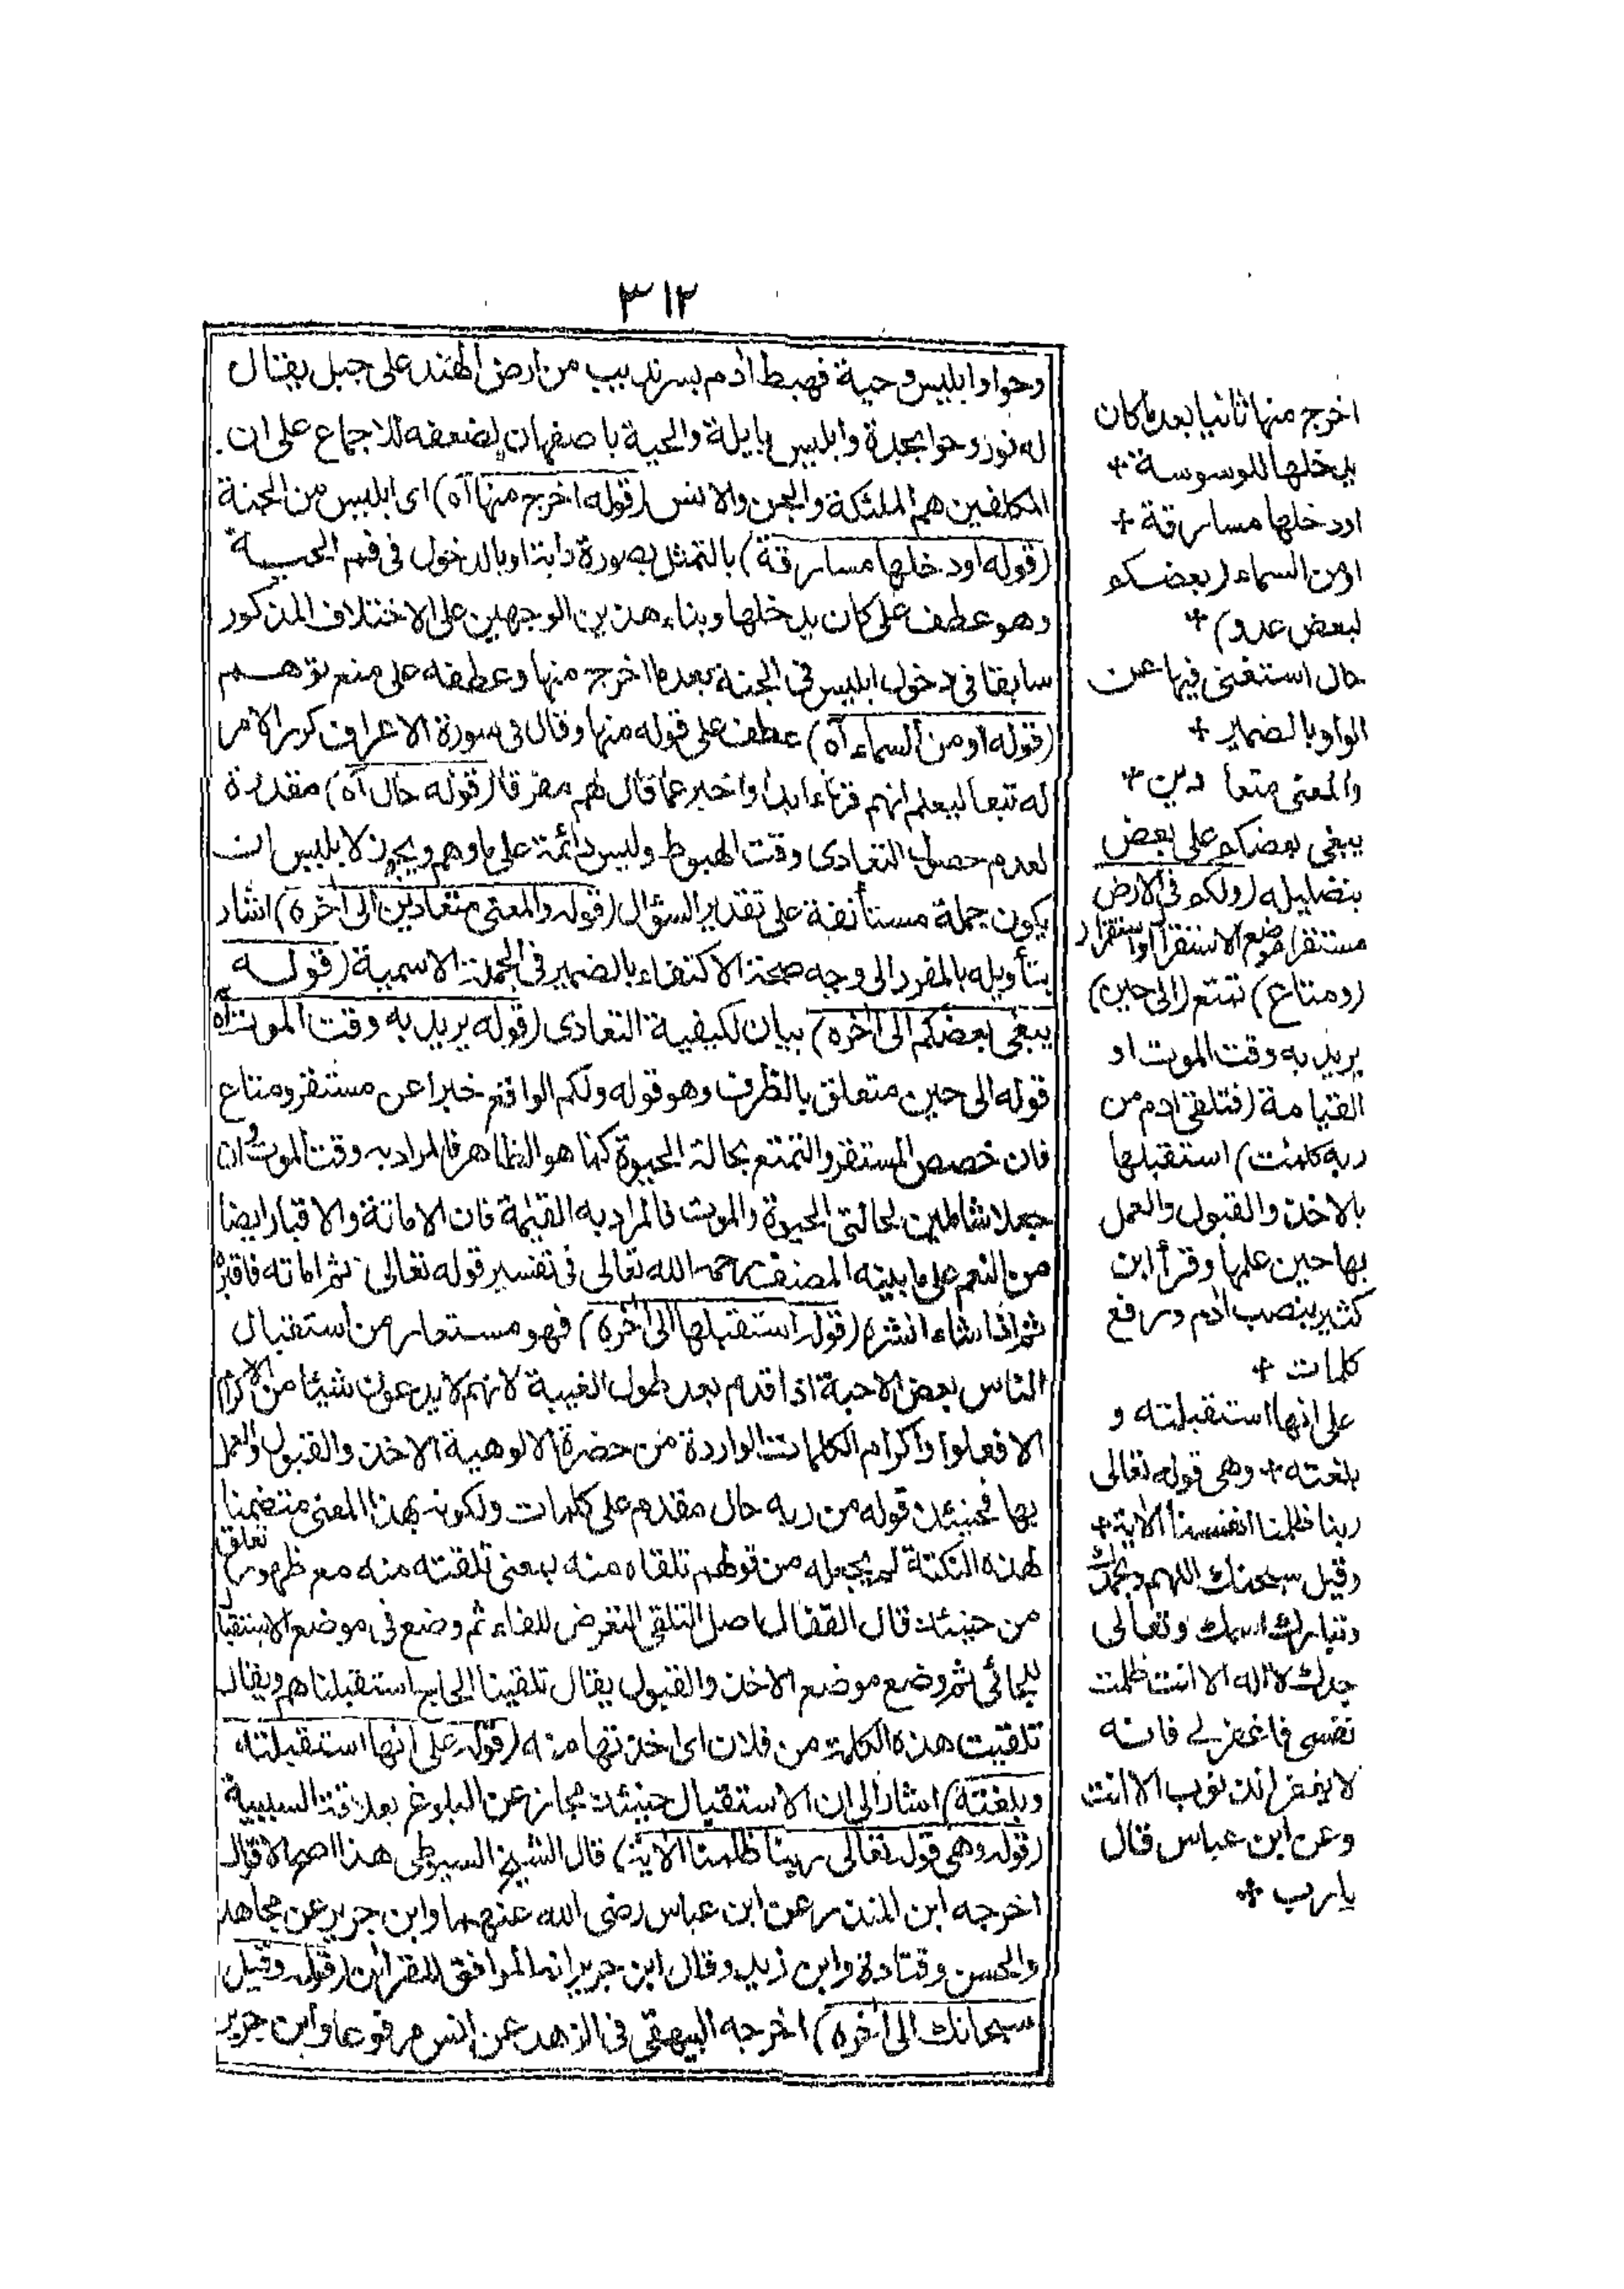 ٣١٢
وحواوابليس وحية فهبط اٰدم بسرنديب من ارض الهند على جبل يقال
له نوذ وحوا بجدة وابليس بايلة والحية باصفهان لضعفه للاجماع على ان
المكلفين هم الملئكة والجن والانس (قوله اخرج منها آه) اى ابليس من الجنة
(قوله اودخلها مسارقة) بالتمثل بصورة دابة اوبالدخول فى فم الحية
وهو عطف على كان يدخلها وبناء هذين الوجهين على الاختلاف المذكور
سابقا فى دخول ابليس فى الجنة بعدما اخرج منها وعطفه على منع توهم
(قوله اومن السماء آه) عطف على قوله منها وقال فى سورة الاعراف كرر الامر
له تبعا ليعلم انهم قرناء ابدا واخبر عما قال لهم مفرقا (قوله حال آه) مقدرة
لعدم حصول التعادى وقت الهبوط وليس دائمة على ما وهم ويجوز لابليس ان
يكون جملة مستأنفة على تقدير السؤال (قوله والمعنى متعادين الى اٰخره) اشار
بتأويله بالمفرد الى وجه صحة الاكتفاء بالضمير فى الجملة الاسمية (قوله
يبغى بعضكم الى اٰخره) بيان لكيفية التعادى (قوله يريد به وقت الموت آه)
قوله الى حين متعلق بالظرف وهو قوله ولكم الواقع خبرا عن مستقر ومتاع
فان خصص المستقر والتمتع بحالة الحيوة كما هو الظاهر فالمراد به وقت الموت وان
جعلا شاملين لحالتى الحيوة والموت فالمراد به القيٰمة فان الاماتة والاقبار ايضا
من النعم على ما بينه المصنف رحمه الله تعالى فى تفسير قوله تعالى ثم اماته فاقبره
ثم اذا شاء انشره (قوله استقبلها الى اٰخره) فهو مستعار من استقبال
الناس بعض الاحبة اذا قدم بعد طول الغيبة لانهم لا يدعون شيئا من الاكرام
الا فعلوا واكرام الكلمات الواردة من حضرة الالوهية الاخذ والقبول والعمل
بها فحينئذ قوله من ربه حال مقدم على كلمات ولكونه بهذا المعنى متضمنا
لهذه النكتة لم يجعله من قولهم تلقاه منه بمعنى تلقته منه مع ظهور تعلق
من حينئذ قال القفال اصل التلقى التعرض للقاء ثم وضع فى موضع الاستقبال
للجائى ثم وضع موضع الاخذ والقبول يقال تلقينا الحاج استقبلناهم ويقال
تلقيت هذه الكلمة من فلان اى اخذتها منه (قوله على انها استقبلته
وبلغته) اشار الى ان الاستقبال حينئذ مجاز عن البلوغ بعلاقة السببية
(قوله وهى قوله تعالى ربنا ظلمنا الاية) قال الشيخ السيوطى هذا اصح الاقوال
اخرجه ابن المنذر عن ابن عباس رضى الله عنهما وابن جرير عن مجاهد
والحسن وقتادة وابن زيد وقال ابن جرير انه الموافق للقراٰن (قوله وقيل
سبحانك الى اٰخره) اخرجه البيهقى فى الزهد عن انس مرفوعا وابن جرير
اخرج منها ثانيا بعدما كان
يدخلها للوسوسة +
اودخلها مسارقة +
اومن السماء (بعضكم
لبعض عدو) +
حال استغنى فيها عن
الواو بالضمير +
والمعنى متعادين +
يبغى بعضكم على بعض
بتضليله (ولكم فى الارض
مستقر) موضع الاستقرار او استقرار
(ومتاع) تمتع (الى حين)
يريد به وقت الموت او
القيامة (فتلقى اٰدم من
ربه كلمٰت) استقبلها
بالاخذ والقبول والعمل
بها حين علمها وقرأ ابن
كثير بنصب اٰدم ورفع
كلمات +
على انها استقبلته و
بلغته + وهى قوله تعالى
ربنا ظلمنا انفسنا الاية +
وقيل سبحنك اللهم وبحمدك
وتبارك اسمك وتعالى
جدك لا اله الا انت ظلمت
نفسى فاغفرلى فانه
لا يغفر الذنوب الا انت
وعن ابن عباس قال
يا رب +